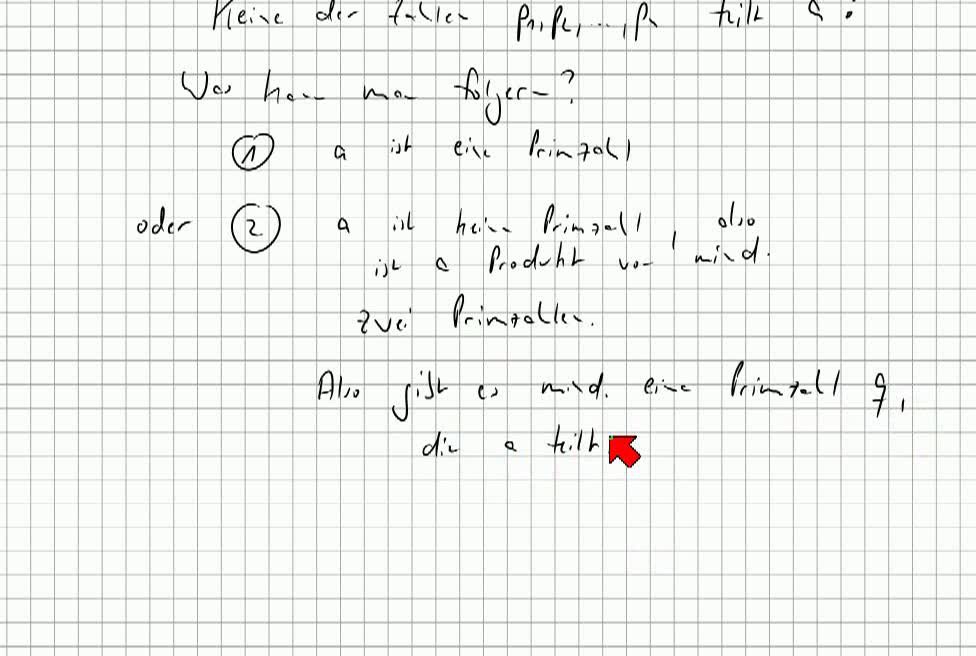 Keine der Zahlen p₁, p₂, ..., pₙ teilt a.
Was kann man folgern?
① a ist eine Primzahl
oder ② a ist keine Primzahl, also
ist a Produkt von mind.
zwei Primzahlen.
Also gibt es mind. eine Primzahl q,
die a teilt